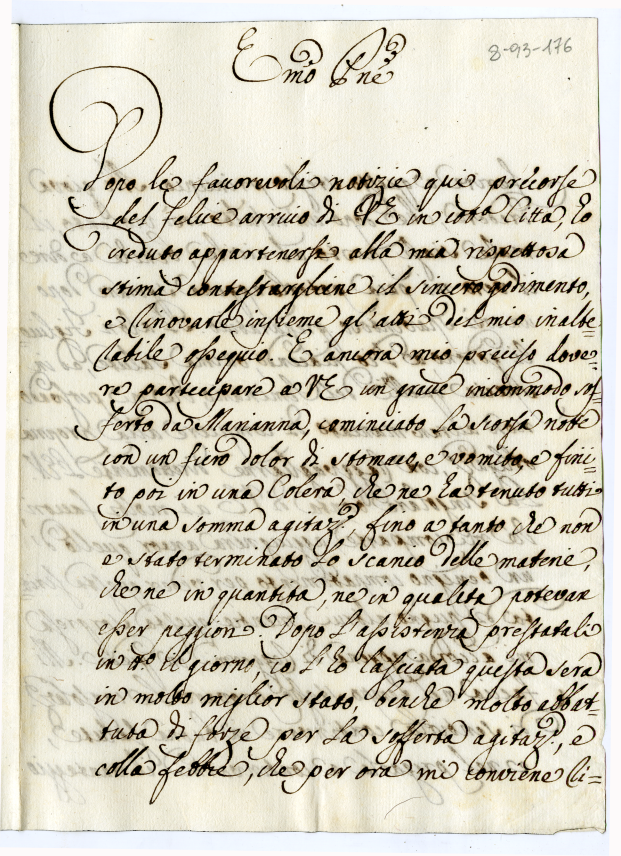 8-93-176
Emo Pne
Dopo le favorevoli notizie qui precorse
del felice arrivo di VE in cotª Citta, ho
creduto appartenersi alla mia rispettosa
stima contestargliene il sincero godimento,
e rinovarle insieme gl'atti del mio inalte=
rabile ossequio. È ancora mio preciso dove=
re participare a VE un grave incommodo sof=
ferto da Marianna, cominciato la scorsa notte
con un fiero dolor di stomaco, e vomito, e fini=
to poi in una Colera, che ne ha tenuto tutti
in una somma agitaz.e, fino a tanto che non
e stato terminato lo scarico delle materie,
che ne in quantita, ne in qualita potevan
esser peggiori. Dopo l'assistenza prestatali
in tto il giorno, io l'ho lasciata questa sera
in molto miglior stato, benche molto abbat=
tuta di forze per la sofferta agitaz.e, e
colla febbre, che per ora mi conviene ri=